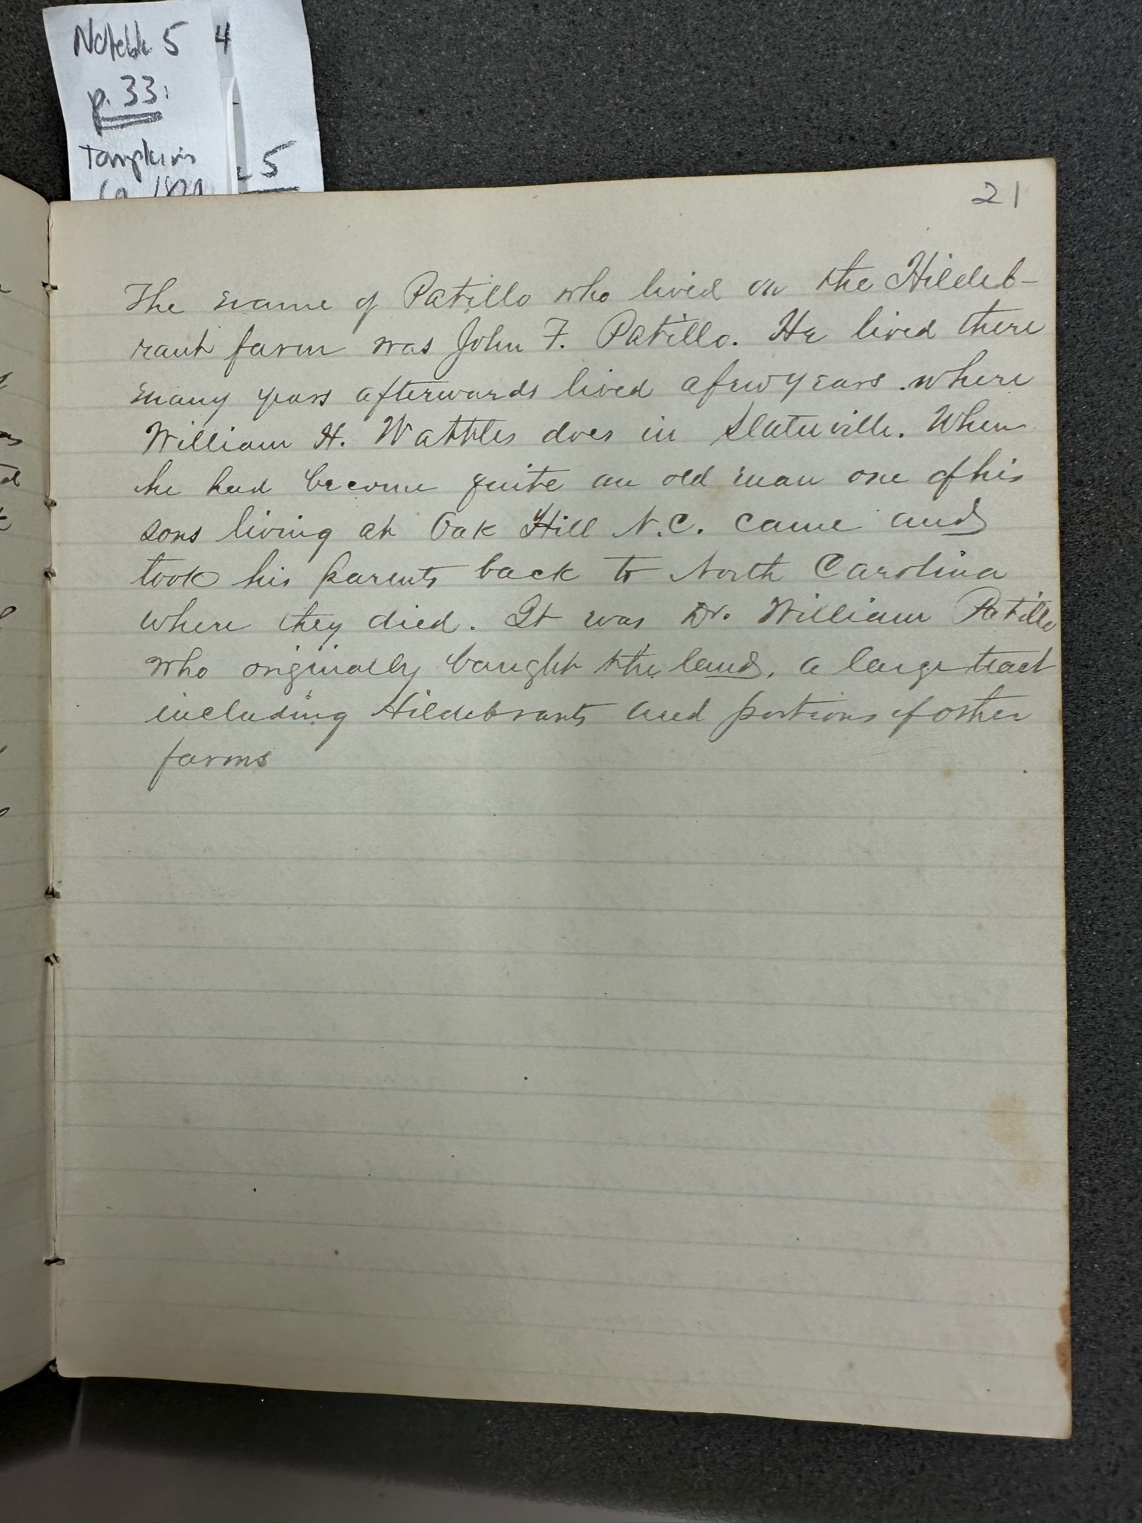 Notebk 5 4
p. 33:
Tompkins
5
21
The name of Patillo who lived on the Hildeb-
rant farm was John F. Patillo. He lived there
many years afterwards lived a few years where
William H. Wattles does in Slaterville. When
he had become quite an old man one of his
sons living at Oak Hill N.C. came and
took his parents back to North Carolina
where they died. It was Dr. William Patillo
who originally bought the land, a large tract
including Hildebrants and portions of other
farms